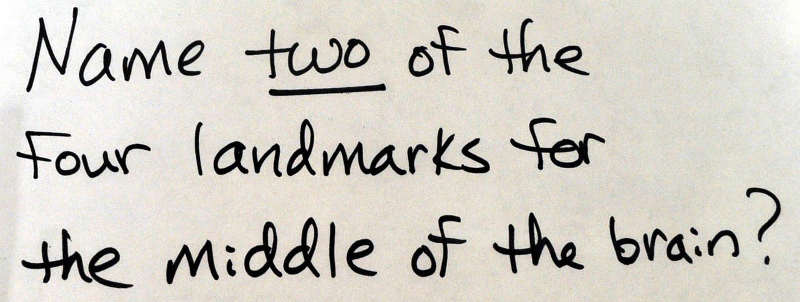 Name two of the
Four landmarks for
the middle of the brain?